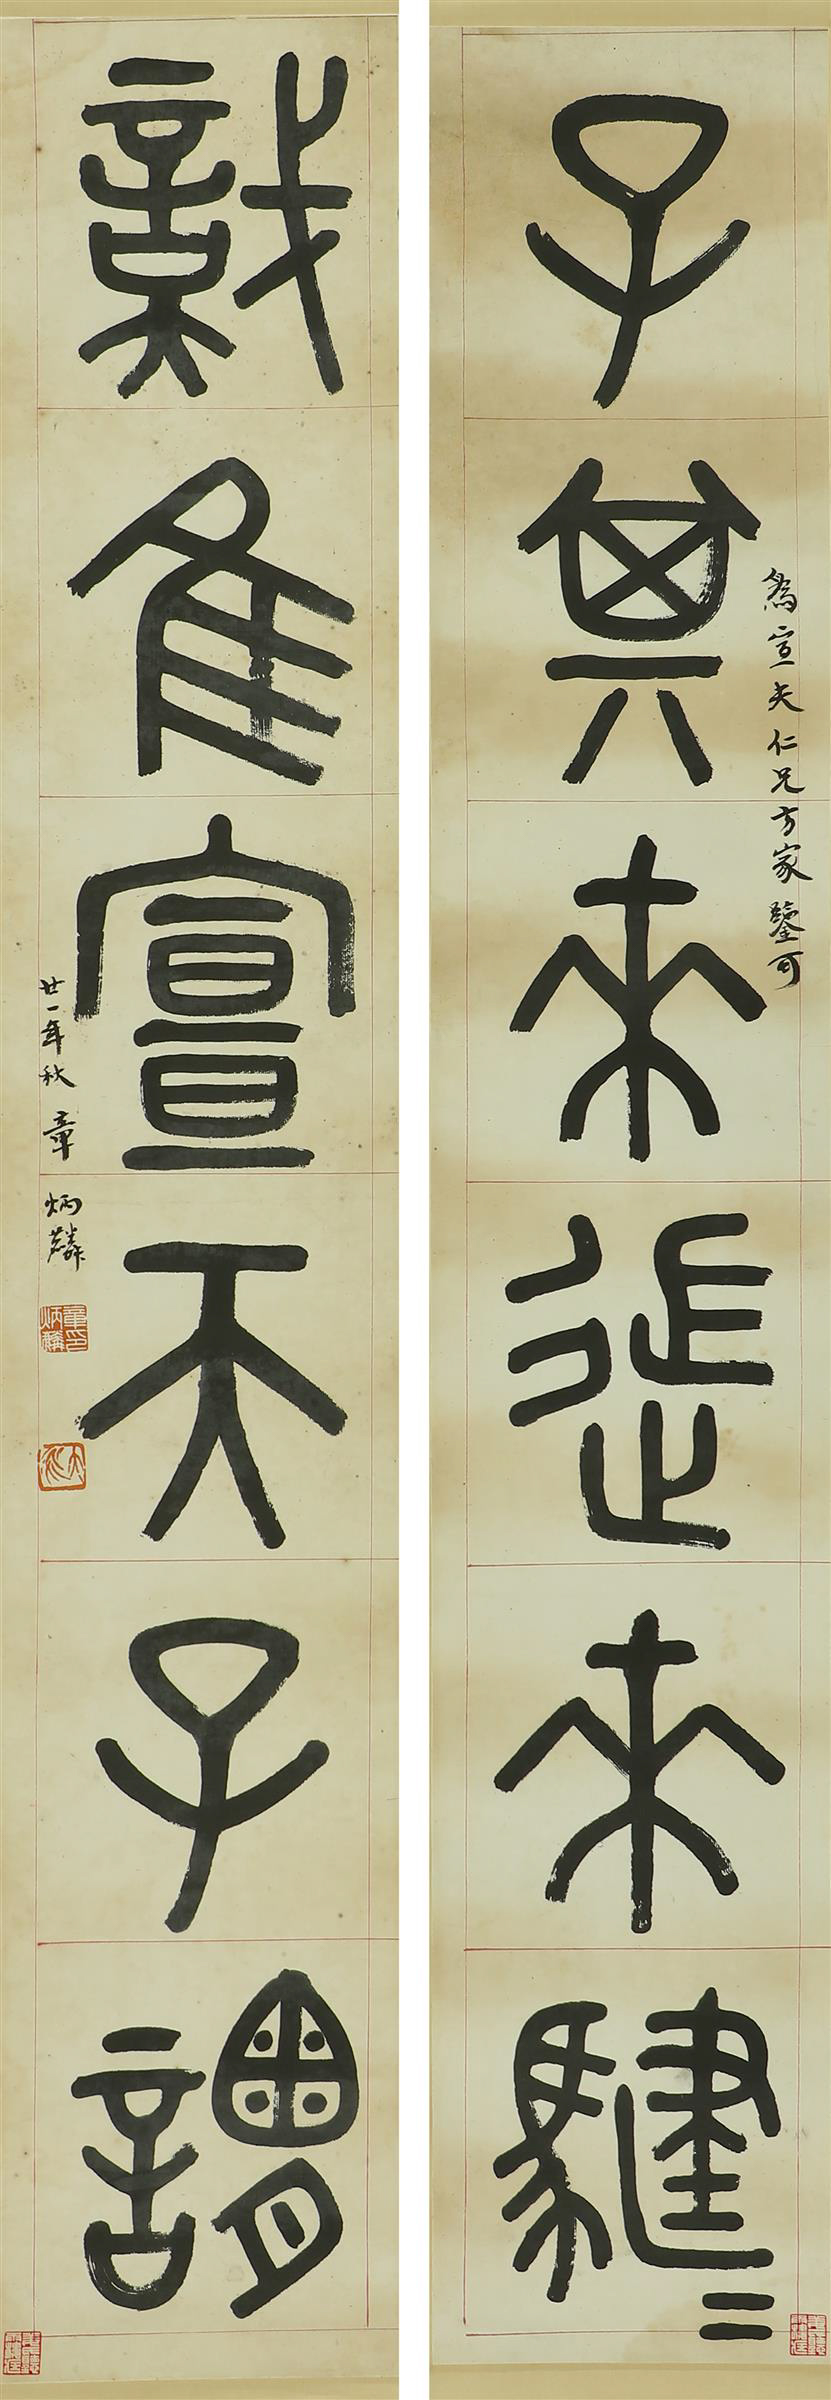 為宣夫仁兄方家鑒可
子其來來騝=
隹宣天子謂
廿一年秋 章炳麟
章炳麟印
太炎